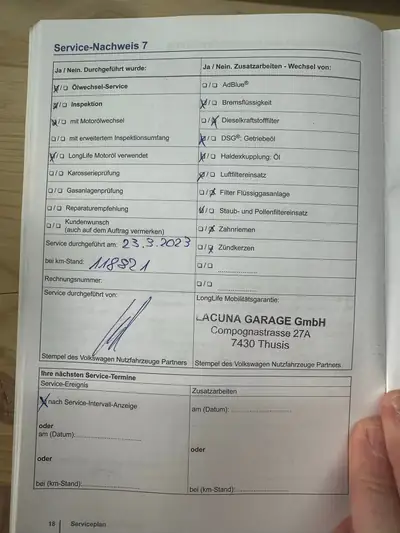 Service-Nachweis 7
Ja / Nein. Durchgeführt wurde:
☒/☐ Ölwechsel-Service
☒/☐ Inspektion
☒/☐ mit Motorölwechsel
☐/☐ mit erweitertem Inspektionsumfang
☒/☐ LongLife Motoröl verwendet
☐/☐ Karosserieprüfung
☐/☐ Gasanlagenprüfung
☐/☐ Reparaturempfehlung
☐/☐ Kundenwunsch
(auch auf dem Auftrag vermerken)
Service durchgeführt am: 23.3.2023
bei km-Stand: 118821
Rechnungsnummer:
Service durchgeführt von:
Stempel des Volkswagen Nutzfahrzeuge Partners
Ja / Nein. Zusatzarbeiten - Wechsel von:
☐/☐ AdBlue®
☒/☐ Bremsflüssigkeit
☐/☒ Dieselkraftstofffilter
☒/☐ DSG®: Getriebeöl
☒/☐ Haldexkupplung: Öl
☒/☐ Luftfiltereinsatz
☐/☒ Filter Flüssiggasanlage
☒/☐ Staub- und Pollenfiltereinsatz
☐/☒ Zahnriemen
☐/☒ Zündkerzen
☐/☐
☐/☐
LongLife Mobilitätsgarantie:
LACUNA GARAGE GmbH
Compognastrasse 27A
7430 Thusis
Stempel des Volkswagen Nutzfahrzeuge Partners
Ihre nächsten Service-Termine
Service-Ereignis
☒ nach Service-Intervall-Anzeige
oder
am (Datum):
oder
bei (km-Stand):
Zusatzarbeiten
am (Datum):
oder
bei (km-Stand):
18 Serviceplan